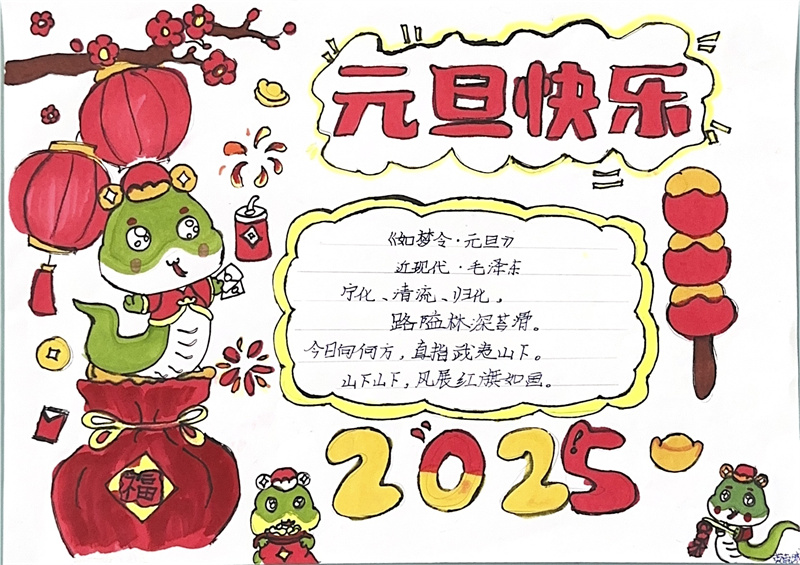 元旦快乐
《如梦令·元旦》
近现代·毛泽东
宁化、清流、归化，
路隘林深苔滑。
今日向何方，直指武夷山下。
山下山下，风展红旗如画。
2025
福